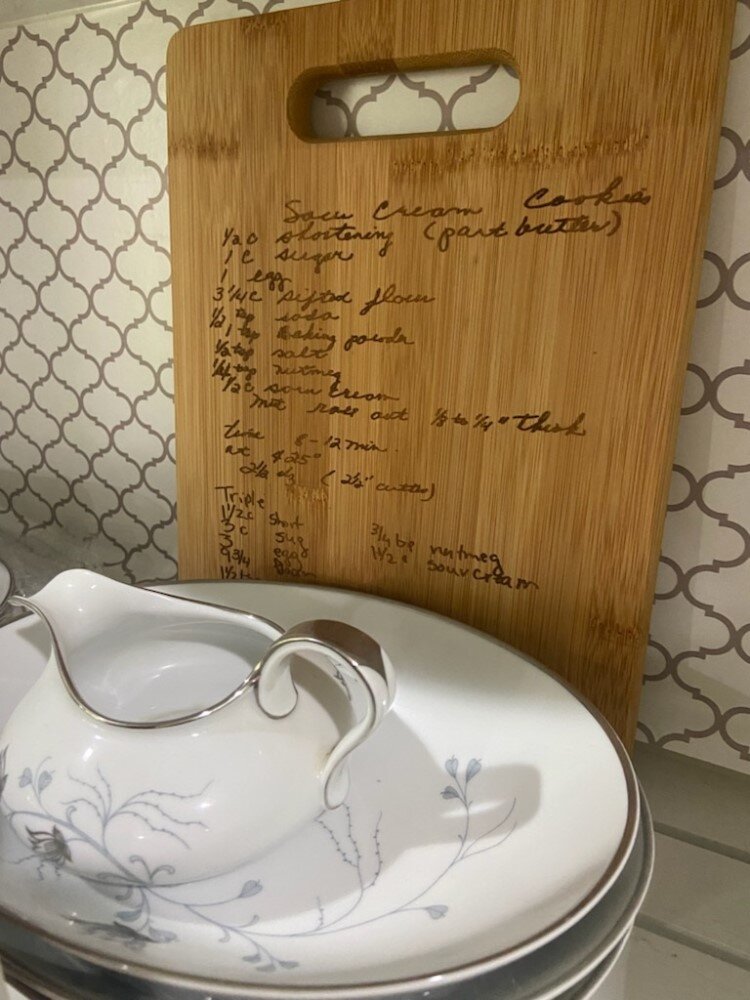 Sour Cream Cookies
1/2 c shortening (part butter)
1 c sugar
1 egg
3 1/4 c sifted flour
1/2 tsp soda
1 tsp Baking powder
1/2 tsp salt
1/4 tsp nutmeg
1/2 c sour cream
roll out 1/8 to 1/4" thick
8-12 min.
at 425°
2 1/2 dz (2 1/2" cutter)
Triple
1 1/2 c short
3 c sug
3 eggs
9 3/4
1 1/2
3/4 tsp nutmeg
1 1/2 c sour cream